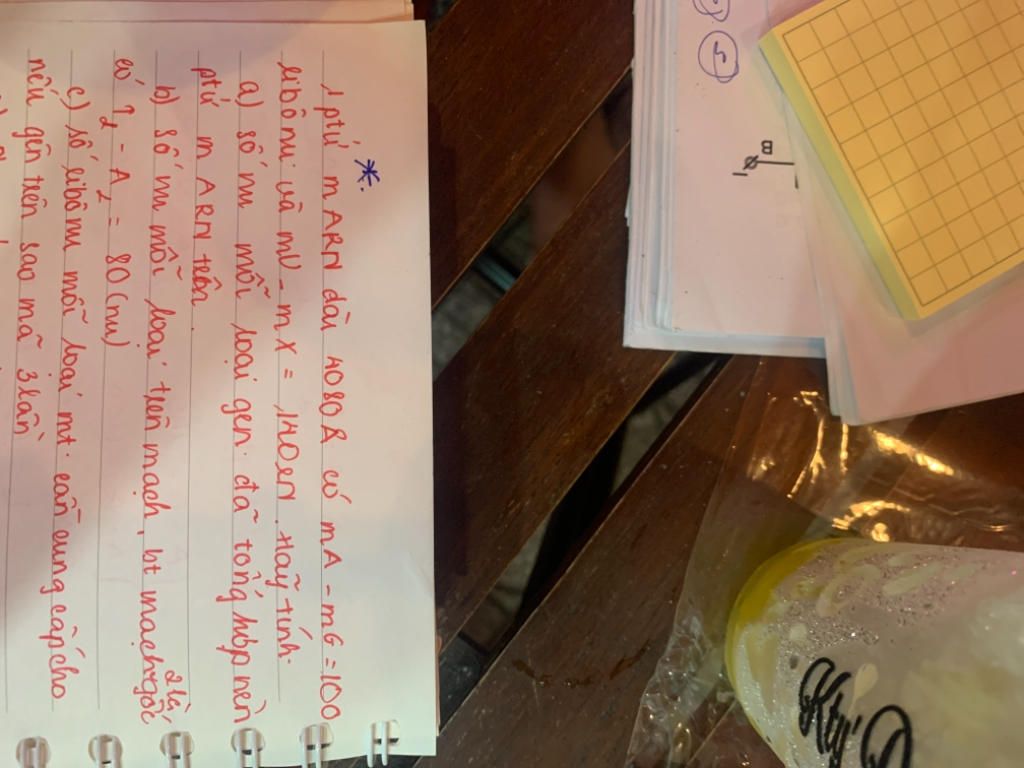 *.
1 ptử mARN dài 4080 Å có mA - mG = 100
ribônu và mU - mX = 140 rN. Hãy tính.
a) số nu mỗi loại gen đã tổng hợp nên
ptử mARN trên.
b) số nu mỗi loại trên mạch, bt mạch gốc 2 là
có T2 - A2 = 80 (nu)
c) số ribônu mỗi loại mt cần cung cấp cho
nếu gen trên sao mã 3 lần
5
B
1